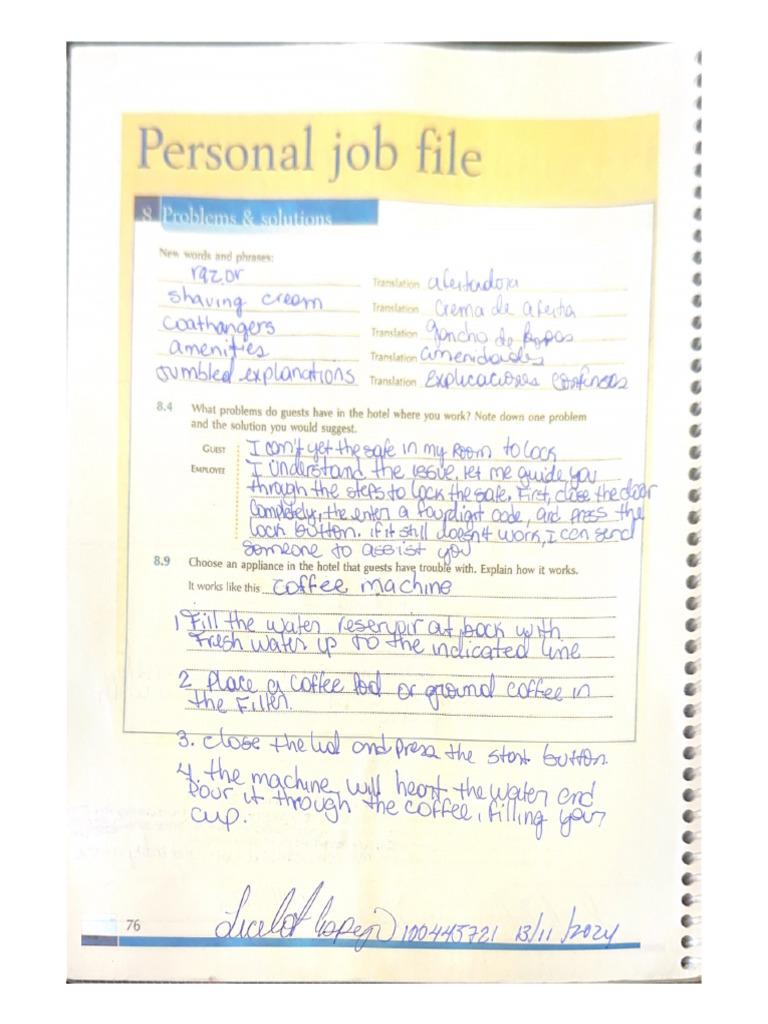 Personal job file
8 Problems & solutions
New words and phrases:
razor Translation afeitadora
shaving cream Translation crema de afeita
coathangers Translation gancho de Ropas
amenities Translation amenidades
Jumbled explanations Translation Explicaciones confusas
8.4 What problems do guests have in the hotel where you work? Note down one problem
and the solution you would suggest.
GUEST I can't get the safe in my Room to lock
EMPLOYEE I understand the issue. let me guide you
through the steps to lock the safe. First, close the door
Completely, the enter a four digit code, and press the
lock button. if it still doesn't work, I can send
someone to assist you
8.9 Choose an appliance in the hotel that guests have trouble with. Explain how it works.
It works like this coffee machine
1 Fill the water reservoir at back with
Fresh water up to the indicated line
2 Place a coffee Pod or ground coffee in
the Filter.
3. close the lid and press the start button.
4. the machine will heat the water and
Pour it through the coffee, filling your
cup.
76 100445721 13/11/2024